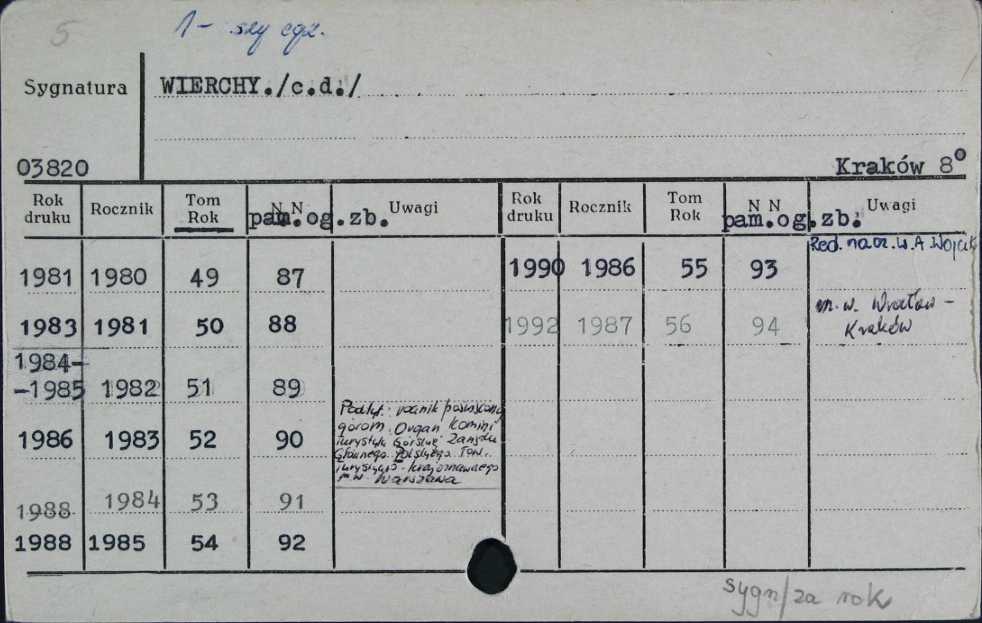 5
1- szy egz.
Sygnatura WIERCHY./c.d./
03820 Kraków 8°
Rok druku Rocznik Tom Rok N N pam.og.zb. Uwagi Rok druku Rocznik Tom Rok N N pam.og.zb. Uwagi
1981 1980 49 87
1983 1981 50 88
1984-
-1985 1982 51 89
1986 1983 52 90
Podtyt.: rocznik poświęcony
górom. Organ Komisji
Turystyki Górskiej Zarządu
Głównego Polskiego Tow.
Turystyczno-krajoznawczego
m.w. Warszawa
1988 1984 53 91
1988 1985 54 92
1990 1986 55 93 Red. nacz. W.A. Wójcik
1992 1987 56 94 m.w. Wrocław -
Kraków
sygn/za rok